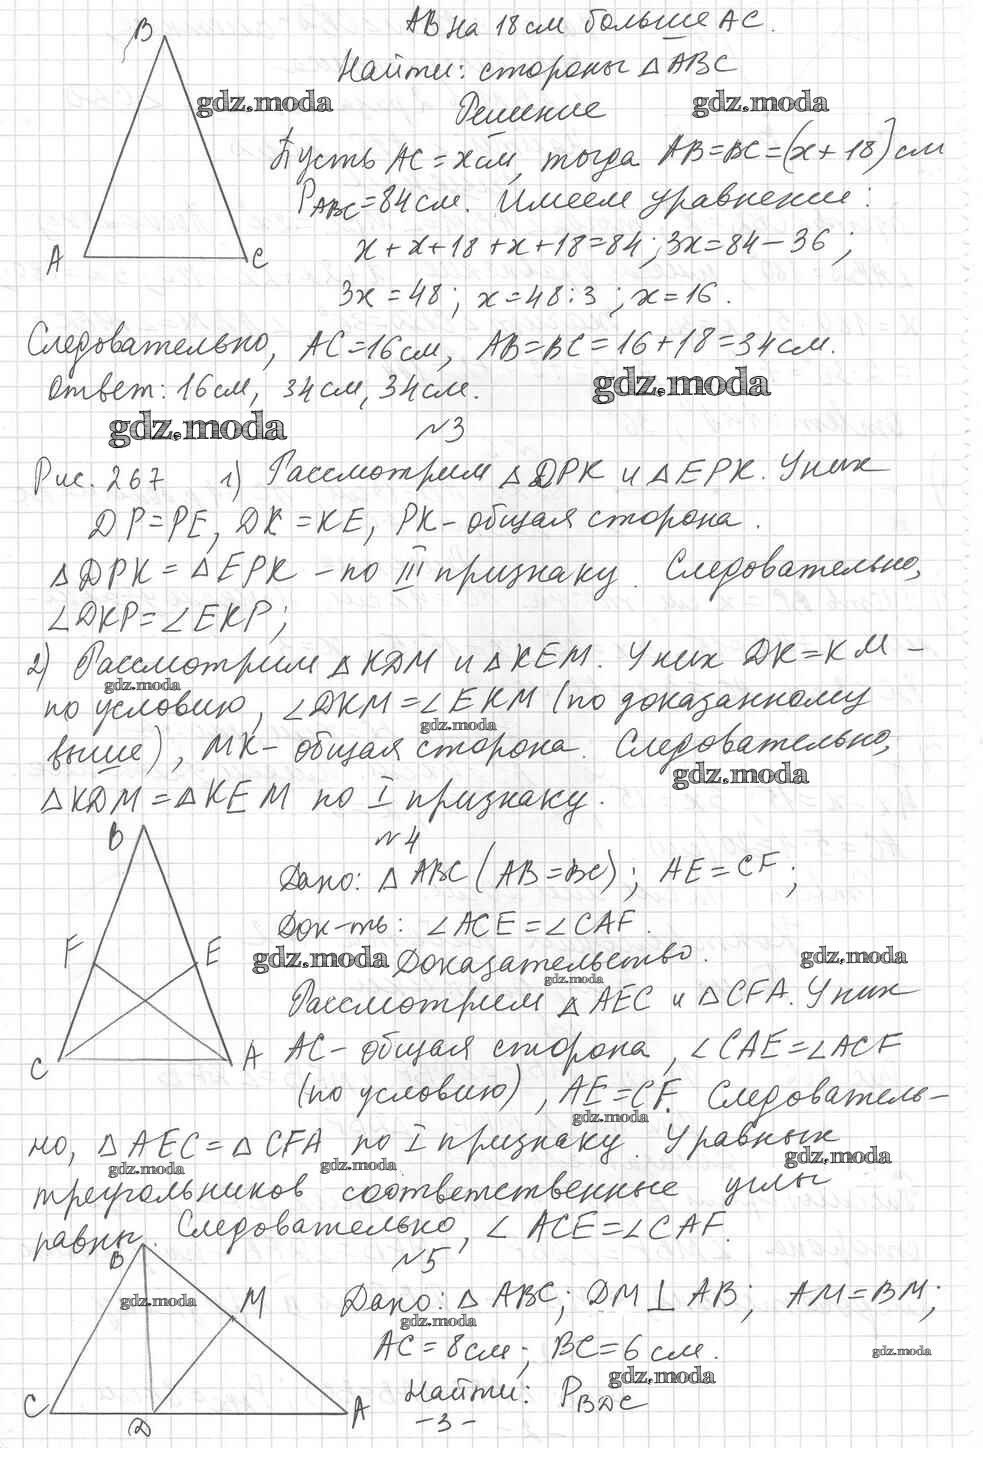 B
AB на 18 см больше AC.
Найти: стороны △ABC
gdz.moda
Решение
gdz.moda
Пусть AC = x см, тогда AB=BC=(x+18) см
P_ABC=84 см. Имеем уравнение:
A
C
x+x+18+x+18=84; 3x=84-36;
3x=48; x=48:3; x=16.
Следовательно, AC=16см, AB=BC=16+18=34см.
Ответ: 16см, 34см, 34см.
gdz.moda
gdz.moda
№3
Рис. 267 1) Рассмотрим △DPK и △EPK. У них
DP=PE, DK=KE, PK- общая сторона.
△DPK=△EPK -по III признаку. Следовательно,
∠DKP=∠EKP;
2) Рассмотрим △KDM и △KEM. У них DK=KM -
gdz.moda
по условию, ∠DKM=∠EKM (по доказанному
gdz.moda
выше), MK- общая сторона. Следовательно,
gdz.moda
△KDM=△KEM по I признаку.
B
№4
Дано: △ABC (AB=BC); AE=CF;
Док-ть: ∠ACE=∠CAF.
F
E
gdz.moda
Доказательство.
gdz.moda
gdz.moda
Рассмотрим △AEC и △CFA. У них
C
A
AC- общая сторона, ∠CAE=∠ACF
(по условию), AE=CF. Следователь-
gdz.moda
но, △AEC=△CFA по I признаку. У равных
gdz.moda
gdz.moda
gdz.moda
треугольников соответственные углы
равны. Следовательно, ∠ACE=∠CAF.
B
№5
gdz.moda
M
Дано: △ABC; DM⊥AB; AM=BM;
gdz.moda
AC=8см; BC=6 см.
gdz.moda
gdz.moda
C
D
A
Найти: P_BDC
-3-